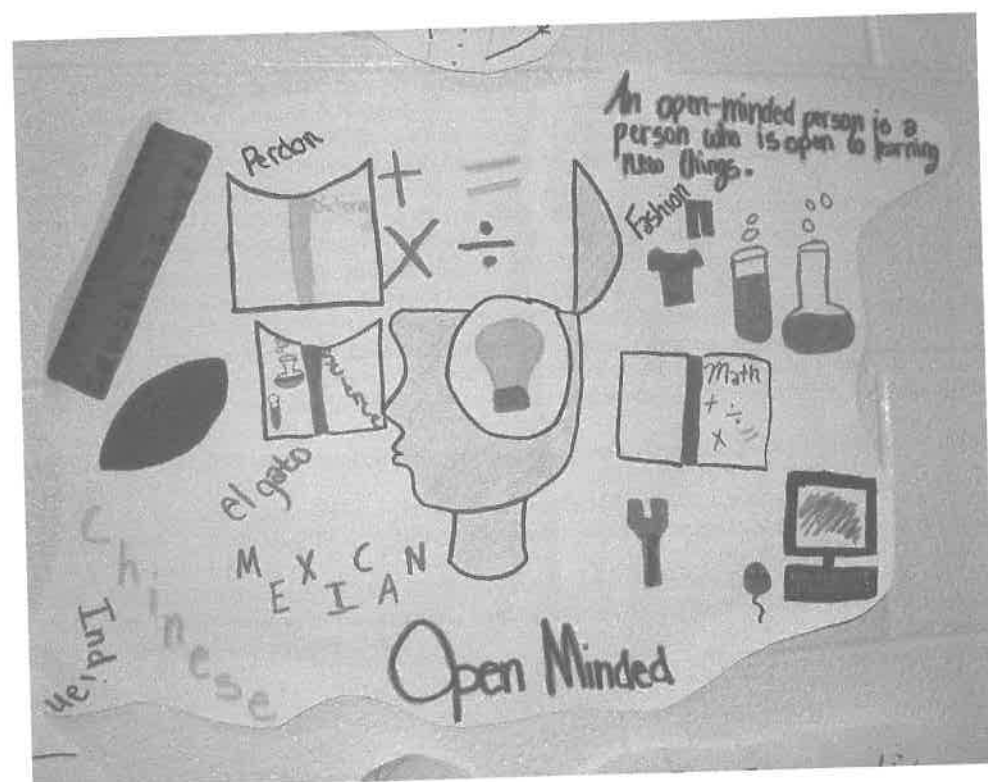 An open-minded person is a
person who is open to learning
new things.
Perdon
+ =
x ÷
Fashion
Science
Math
+ ÷ =
x
el gato
MEXICAN
Chinese
Indian
Open Minded